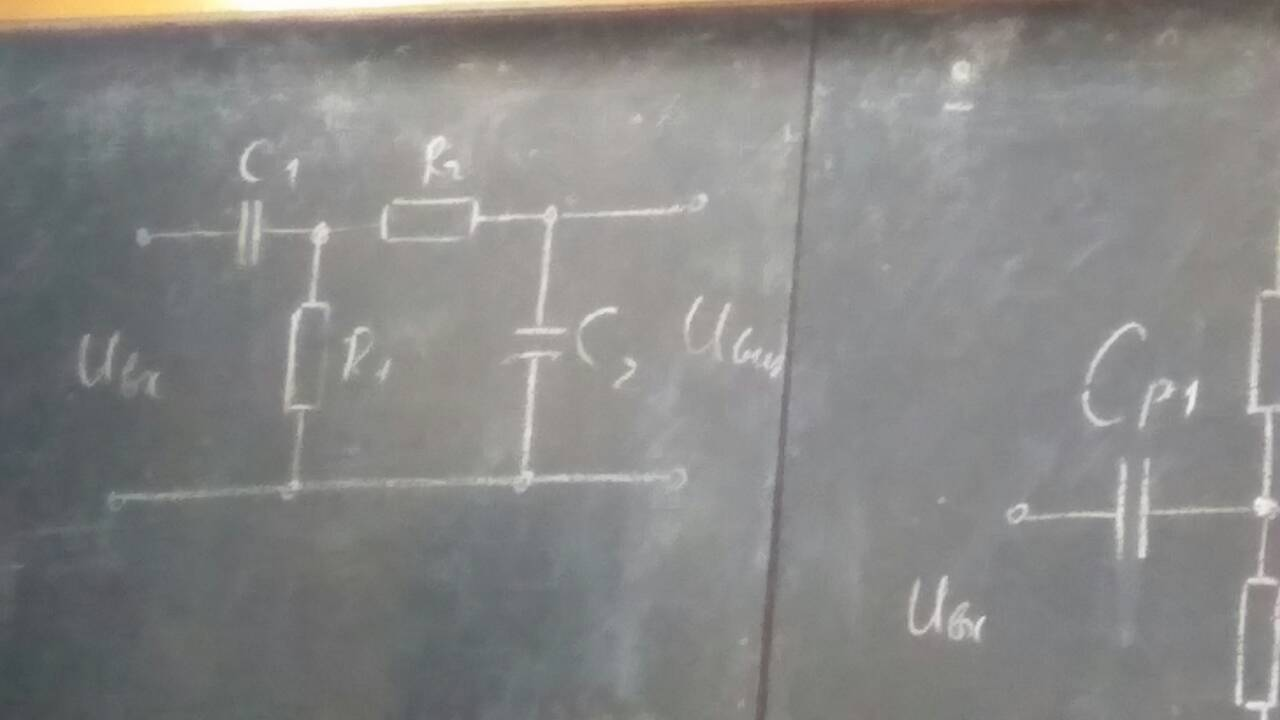 C1
R2
Uвх
R1
C2
Uвых
Cр1
Uвх